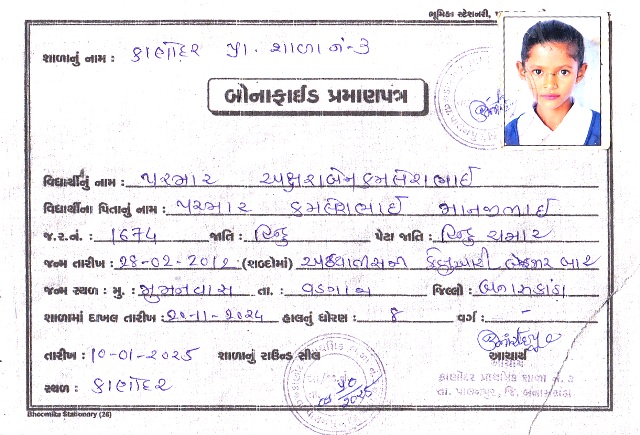 ભૂમિકા સ્ટેશનરી,
શાળાનું નામ : કાણોદર પ્રા. શાળા નં-૩
બોનાફાઈડ પ્રમાણપત્ર
વિદ્યાર્થીનું નામ : પરમાર અક્ષરાબેન કમલેશભાઈ
વિદ્યાર્થીના પિતાનું નામ : પરમાર કમલેશભાઈ માનજીભાઈ
જ.ર.નં. : 1674 જાતિ : હિન્દુ પેટા જાતિ : હિન્દુ ચમાર
જન્મ તારીખ : 28-02-2012 (શબ્દોમાં) અઠ્ઠાવીસમી ફેબ્રુઆરી બેહજાર બાર
જન્મ સ્થળ : મુ : મુમનવાસ તા. : વડગામ જિલ્લો : બનાસકાંઠા
શાળામાં દાખલ તારીખ : 20-11-2024 હાલનું ધોરણ : 8 વર્ગ : -
તારીખ : 10-01-2025 શાળાનું રાઉન્ડ સીલ આચાર્ય
આચાર્ય
સ્થળ : કાણોદર કાણોદર પ્રાથમિક શાળા નં.
તા. પાલનપુર, જિ. બનાસકાંઠા
Bhoomika Stationary (26)